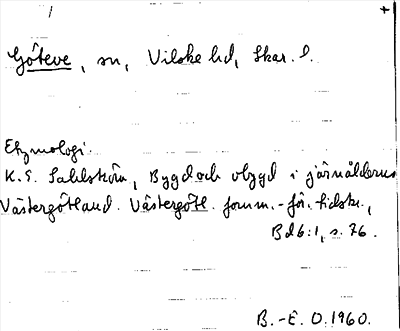 Göteve, sn, Vilske hd, Skar. l.
Etymologi:
K. E. Sahlström, Bygd och obygd i järnålderns
Västergötland. Västergötl. fornm.-för. tidskr.,
Bd 6:1, s. 76.
B.-E. O. 1960.